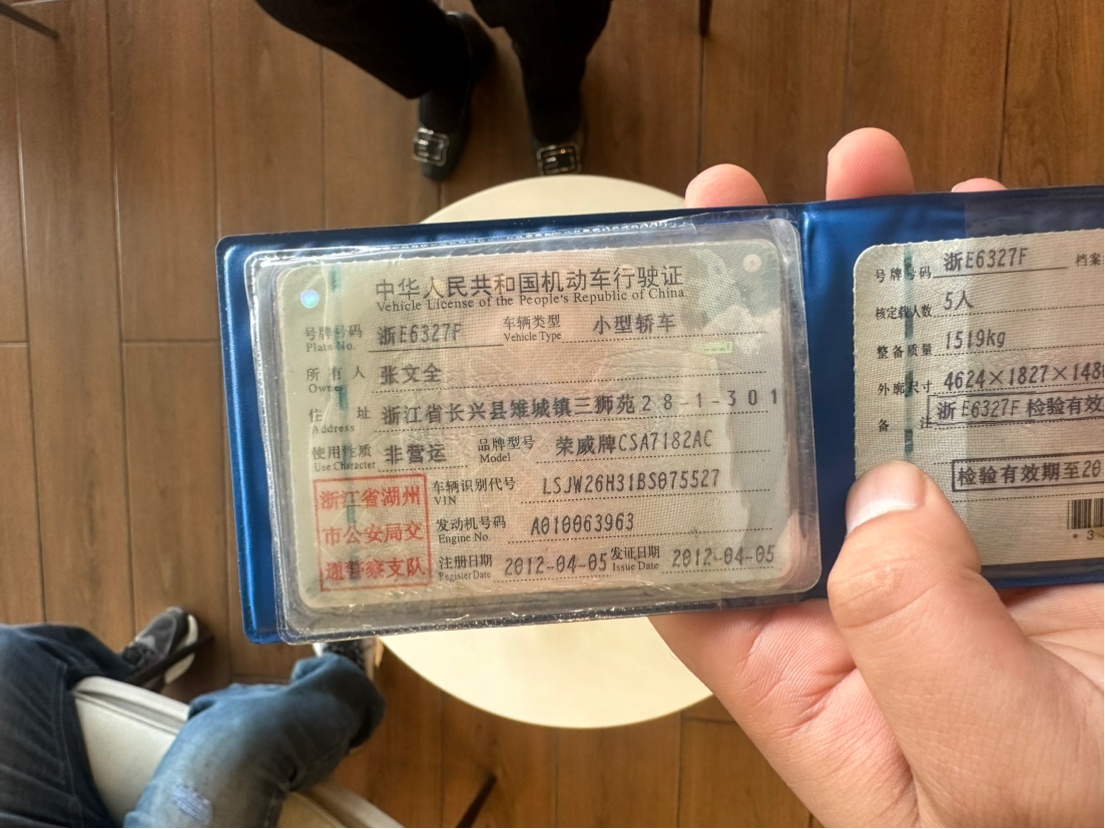 中华人民共和国机动车行驶证
Vehicle License of the People's Republic of China
号牌号码 浙E6327F 车辆类型 小型轿车
Plate No. Vehicle Type
所有人 张文全
Owner
住址 浙江省长兴县雉城镇三狮苑28-1-301
Address
使用性质 非营运 品牌型号 荣威牌CSA7182AC
Use Character Model
浙江省湖州
市公安局交
通警察支队
车辆识别代号 LSJW26H31BS075527
VIN
发动机号码 A010063963
Engine No.
注册日期 2012-04-05 发证日期 2012-04-05
Register Date Issue Date
号牌号码 浙E6327F 档案
核定载人数 5人
整备质量 1519kg
外廓尺寸 4624×1827×148
备注 浙E6327F 检验有效
检验有效期至20